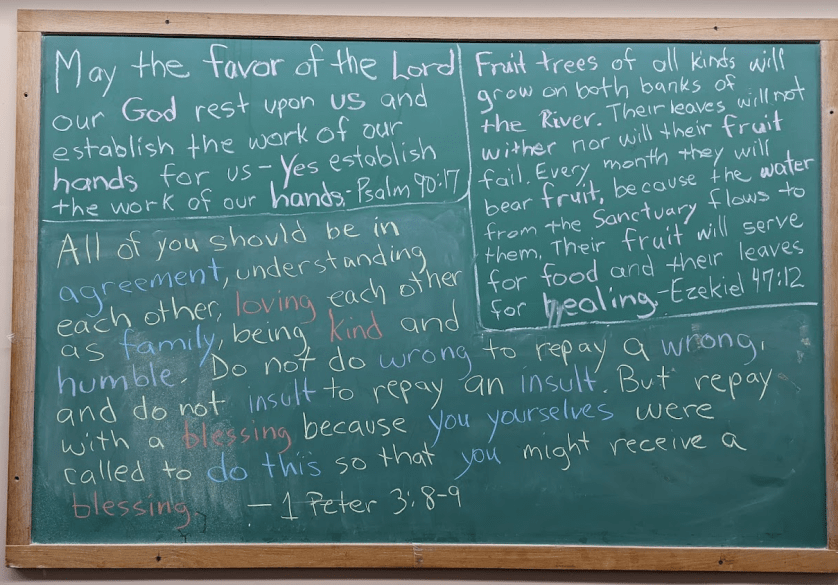 May the favor of the Lord
our God rest upon us and
establish the work of our
hands for us - Yes establish
the work of our hands, - Psalm 90:17
Fruit trees of all kinds will
grow on both banks of
the River. Their leaves will not
wither nor will their fruit
fail. Every month they will
bear fruit, because the water
from the Sanctuary flows to
them. Their fruit will serve
for food and their leaves
for healing. - Ezekiel 47:12
All of you should be in
agreement, understanding
each other, loving each other
as family, being kind and
humble. Do not do wrong to repay a wrong,
and do not insult to repay an insult. But repay
with a blessing because you yourselves were
called to do this so that you might receive a
blessing. - 1 Peter 3:8-9